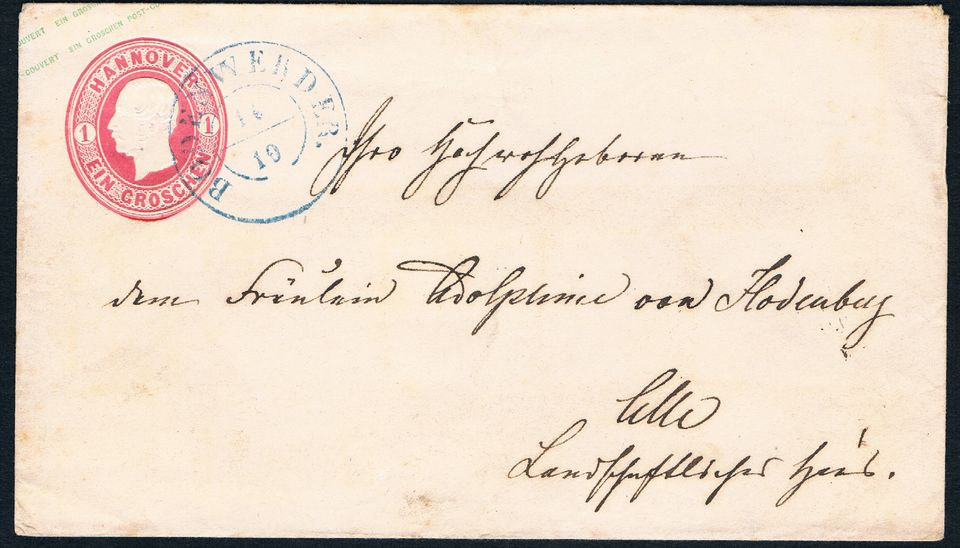 COUVERT EIN GROSCHEN
COUVERT EIN GROSCHEN POST-CO
HANNOVER
1 1
EIN GROSCHEN
BODENWERDER.
19
Ihro Hochwohlgeboren
dem Fräulein Adolphine von Hodenberg
Celle
Landschaftliches Haus.